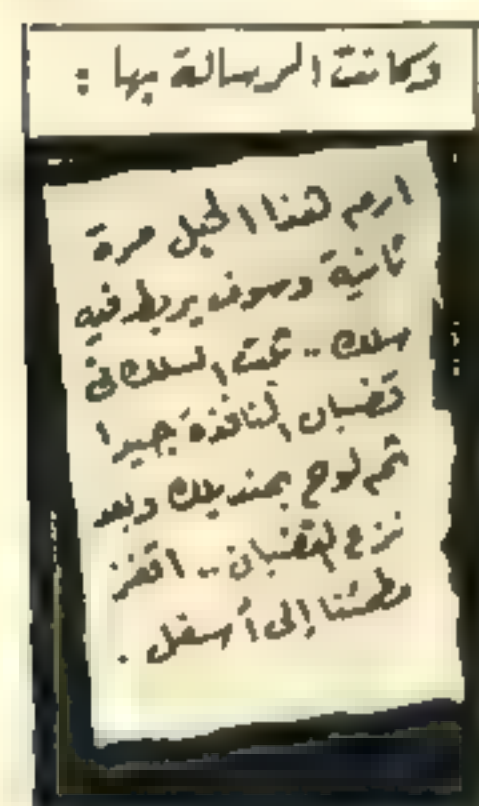 وكانت الرسالة بها :
ارم لهنا الحبل مرة
ثانية وسوف يربط فيه
سلك .. ثبت السلك فى
قضبان النافذة جيدا
ثم لوح بمنديلك وبعد
نزع القضبان .. اقفز
مطمئنا إلى أسفل .